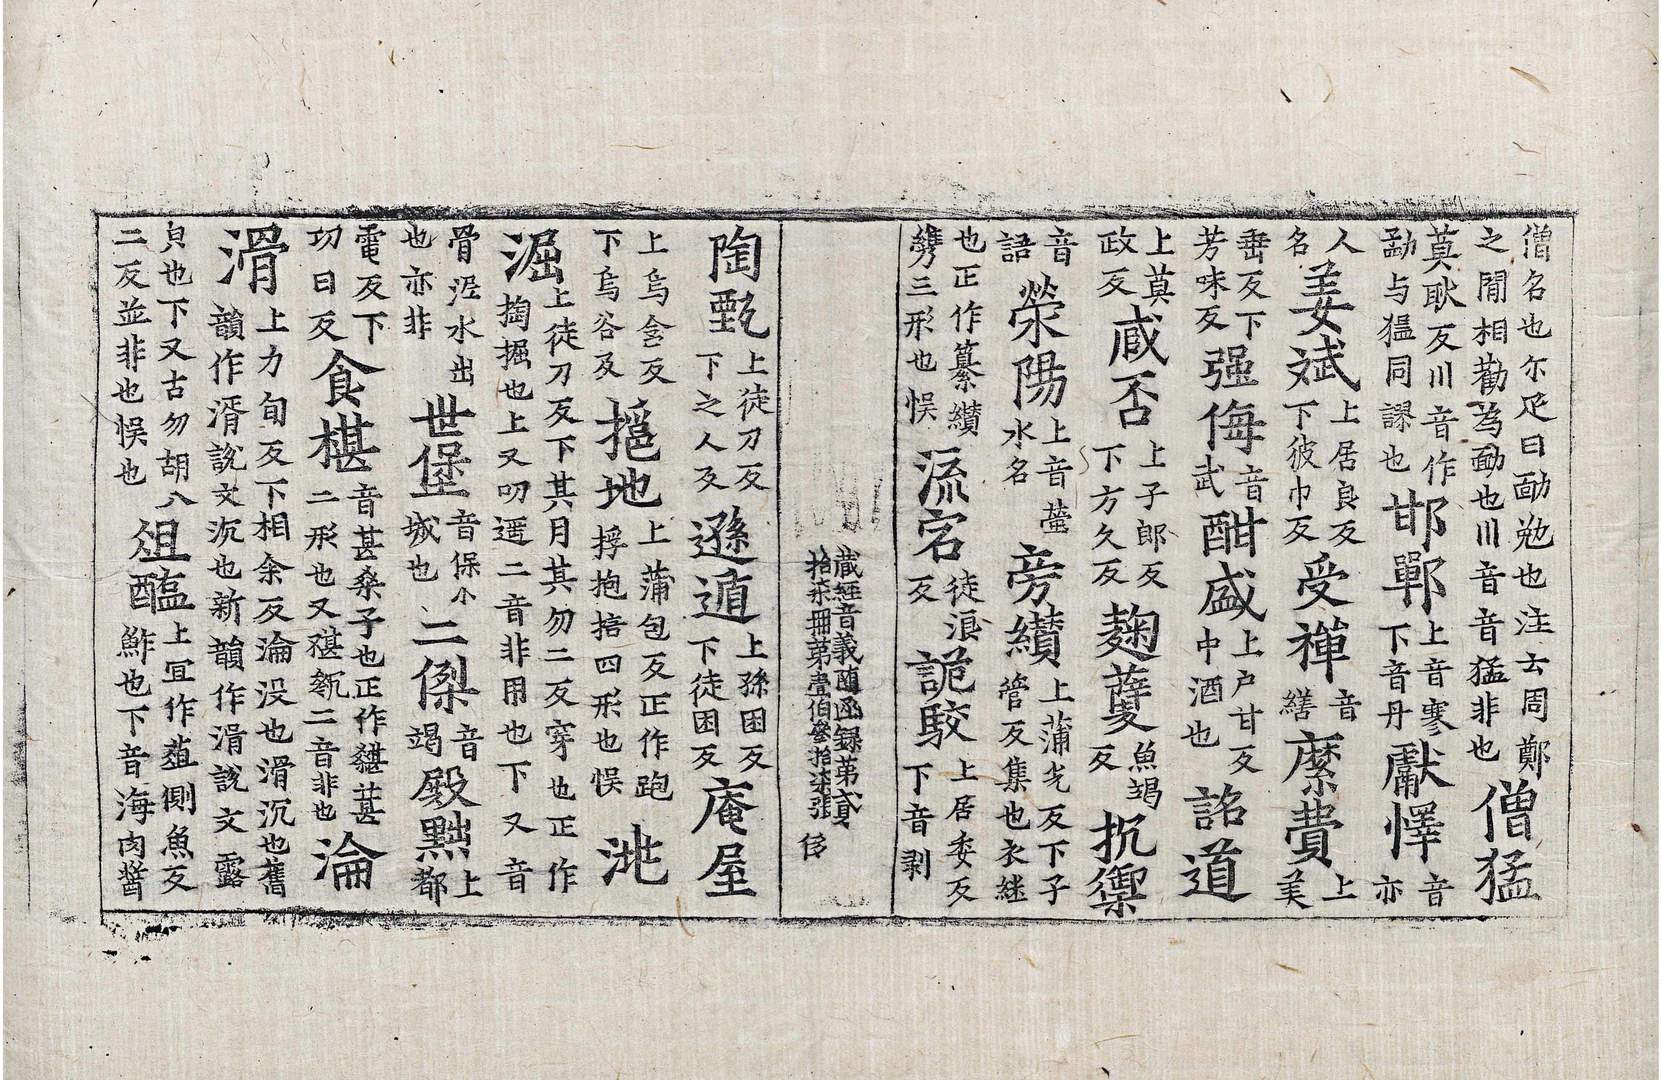 僧名也尒疋曰勔勉也注云周鄭
之閒相勸為勔也川音音猛非也僧猛
莫耿反川音作
勐与猛同謬也邯鄲上音寒下音丹獻懌音亦
人名姜斌上居良反下彼巾反受禪音繕縻費上美
垂反下芳味反强侮音武酣盛上户甘反中酒也詺道
上莫政反戚否上子郎反下方久反麹蘖魚竭反抗禦
音語滎陽上音螢水名旁纘上蒲光反下子管反集也衣継
也正作纂纂纘
三形也悮流宕徒浪反詭駮上居委反下音剥
藏經音義隨函録第貳
拾柒冊第壹伯叄拾柒張
陶甄上徒刀反下之人反遜遁上孫困反下徒困反庵屋
上烏含反下烏谷反掊地上蒲包反正作跑捊抱掊四形也悮
淈上徒刀反下其月其勿二反穿也正作
掏掘也上又叨遥二音非用也下又音
骨淈水出也亦非世堡音保小城也二傑音竭殿黙上都
電反下功日反食椹音甚桒子也正作黮葚二形也又椹二音非也淪
滑上力旬反下相余反淪没也滑沉也舊
韻作湑說文沉也新韻作湑說文露
皃也下又古勿胡八二反並非也悮也俎醢上宜作葅側魚反鮓也下音海肉醬